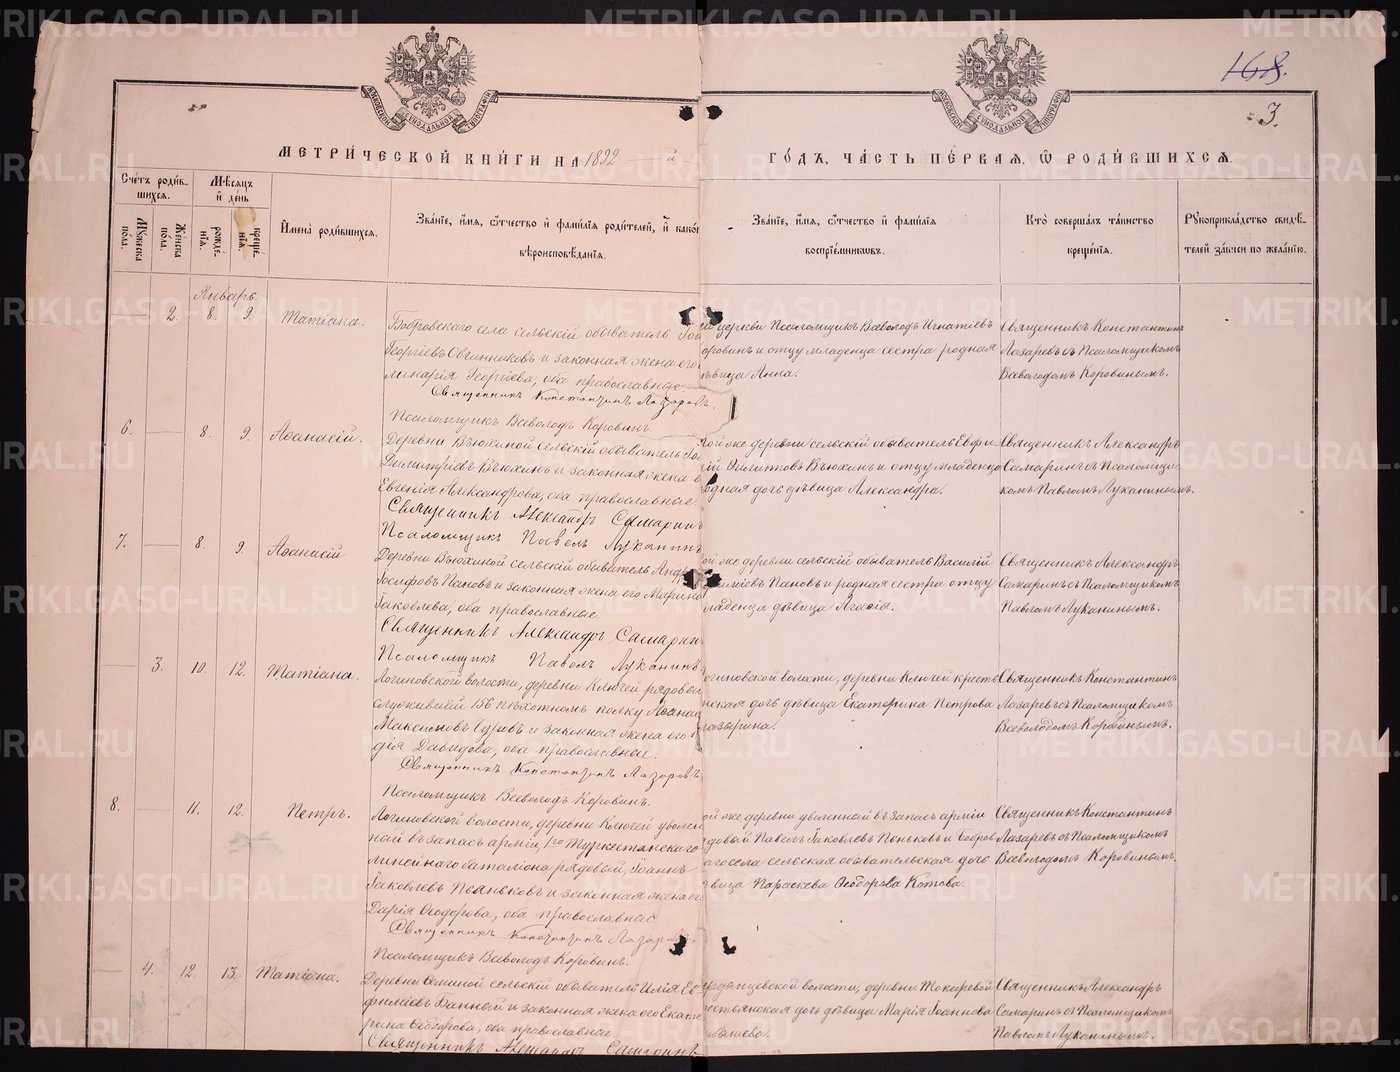 168.
3.
МЕТРИ́ЧЕСКОЙ КНИ́ГИ НА 1892 й ГО́ДЪ, ЧА́СТЬ ПЕ́РВАЯ, Ѡ҆ РОДИ́ВШИХСЯ.
Сче́тъ роди́вшихся.
Мѣ́сяцъ и҆ де́нь
Му́жеска по́ла.
Же́нска по́ла.
рожде́нїя.
креще́нїя.
И҆мена̀ роди́вшихся.
Зва́нїе, и҆́мя, ѻ҆́тчество и҆ фами́лїя роди́телей, и҆ како́
вѣроисповѣ́данїя.
Зва́нїе, и҆́мя, ѻ҆́тчество и҆ фами́лїя
воспрїе́мниковъ.
Кто̀ соверша́лъ та́инство
креще́нїя.
Рꙋкоприкла́дство свидѣ́телей за́писи по жела́нїю.
Январь.
2. 8. 9. Татіана.
Бобровскаго села сельскій обыватель
Георгіевъ Овчинниковъ и законная жена его
Георгіева, оба православные
Священникъ Константинъ Лазаревъ.
Псаломщикъ Всеволодъ Коровинъ.
церкви Псаломщикъ Всеволодъ Игнатіевъ
оровинъ и отцу младенца сестра родная
вица Анна.
Священникъ Константинъ
Лазаревъ съ Псаломщикомъ
Всеволодомъ Коровинымъ.
6. 8. 9. Аѳанасій.
Деревни Вьюхиной сельскій обыватель
Димитріевъ Вьюхинъ и законная жена е
Евгенія Александрова, оба православные.
Священникъ Александръ Самаринъ
Псаломщикъ Павелъ Луканинъ
ой же деревни сельскій обыватель Евфи
ій Филипповъ Вьюхинъ и отцу младенца
одная дочь дѣвица Александра.
Священникъ Александръ
Самаринъ съ Псаломщи-
комъ Павломъ Луканинымъ.
7. 8. 9. Аѳанасій
Деревни Вьюхиной сельскій обыватель Анд
Іосифовъ Пановъ и законная жена его Марина
Іаковлева, оба православные.
Священникъ Александръ Самарин
Псаломщикъ Павелъ Луканинъ
ой же деревни сельскій обыватель Василій
Пановъ и родная сестра отцу
ладенца дѣвица Агаѳія.
Священникъ Александръ
Самаринъ съ Псаломщикомъ
Павломъ Луканинымъ.
3. 10. 12. Татіана.
Логиновской волости, деревни Ключей рядовый
служившій 156 пѣхотномъ полку Аѳанас
Максимовъ Чуровъ и законная жена его
дія Давидова, оба православные.
Священникъ Константинъ Лазаревъ
Псаломщикъ Всеволодъ Коровинъ.
огиновской волости, деревни Ключей кресть
нская дочь дѣвица Екатерина Петрова
Священникъ Константинъ
Лазаревъ съ Псаломщикомъ
Всеволодомъ Коровинымъ.
8. 11. 12. Петръ.
Логиновской волости, деревни Ключей уволен
ный въ запасъ арміи, 1го Туркестанскаго
линейнаго баталіона рядовый, Іоаннъ
Іаковлевъ Пеньковъ и законная жена его
Дарія Ѳеодорова, оба православные
Священникъ Константинъ Лазарев.
Псаломщикъ Всеволодъ Коровинъ.
ой же деревни уволенный въ запасъ арміи
ядовый Павелъ Іаковлевъ Пеньковъ и Бобров
аго села сельская обывательская дочь
вица Параскева Ѳеодорова Котова.
Священникъ Константинъ
Лазаревъ съ Псаломщикомъ
Всеволодомъ Коровинымъ.
4. 12. 13. Татіана.
Деревни Фоминой сельскій обыватель Илія Ев
фиміевъ Банный и законная жена его Екате
рина Ѳеодорова, оба православные
Священникъ Александръ Самаринъ
волости, деревни Токаревой
рестьянская дочь дѣвица Марія Іоаннова
Священникъ Александръ
Самаринъ съ Псаломщикомъ
Павломъ Луканинымъ.